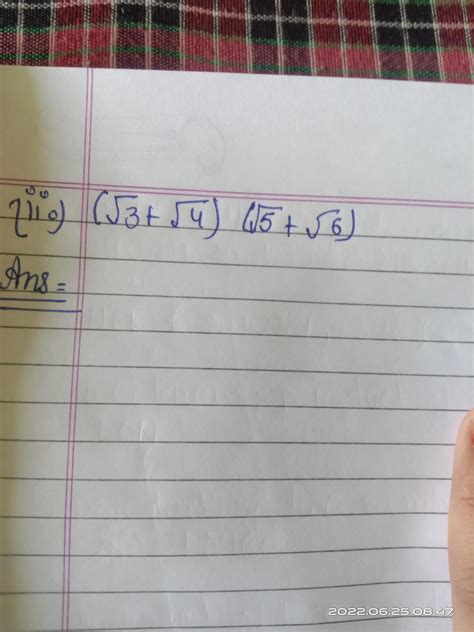 ii) (√3 + √4) (√5 + √6)
Ans =
2022.06.25 08:47